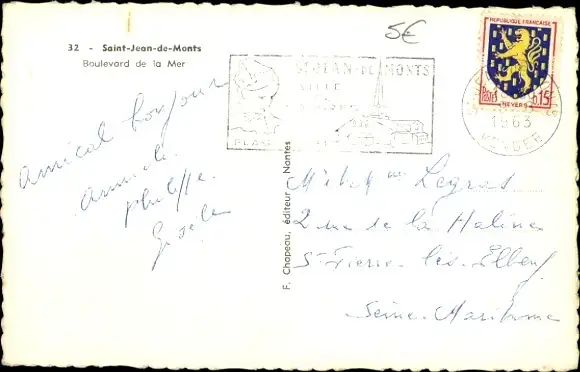 5€
32 - Saint-Jean-de-Monts
Boulevard de la Mer
REPUBLIQUE FRANCAISE
Postes
0,15
NEVERS
ST JEAN-DE-MONTS
VILLE
PLAGE
1963
VENDEE
Amical bonjour
Annick
philippe
Gisèle
F. Chapeau, éditeur - Nantes
Legras
2 rue de la
St-Pierre-lès-Elbeuf
Seine-Maritime